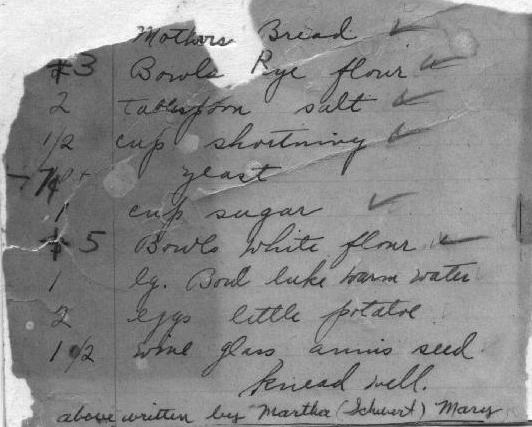 Mothers Bread ✓
3 Bowls Rye flour ✓
2 tablespoon salt ✓
1/2 cup shortning ✓
yeast
1 cup sugar ✓
5 Bowls white flour ✓
1 lg. Bowl luke warm water
2 eggs little potatoe
1 1/2 wine glass annis seed.
knead well.
above written by Martha (Schwert) Mary